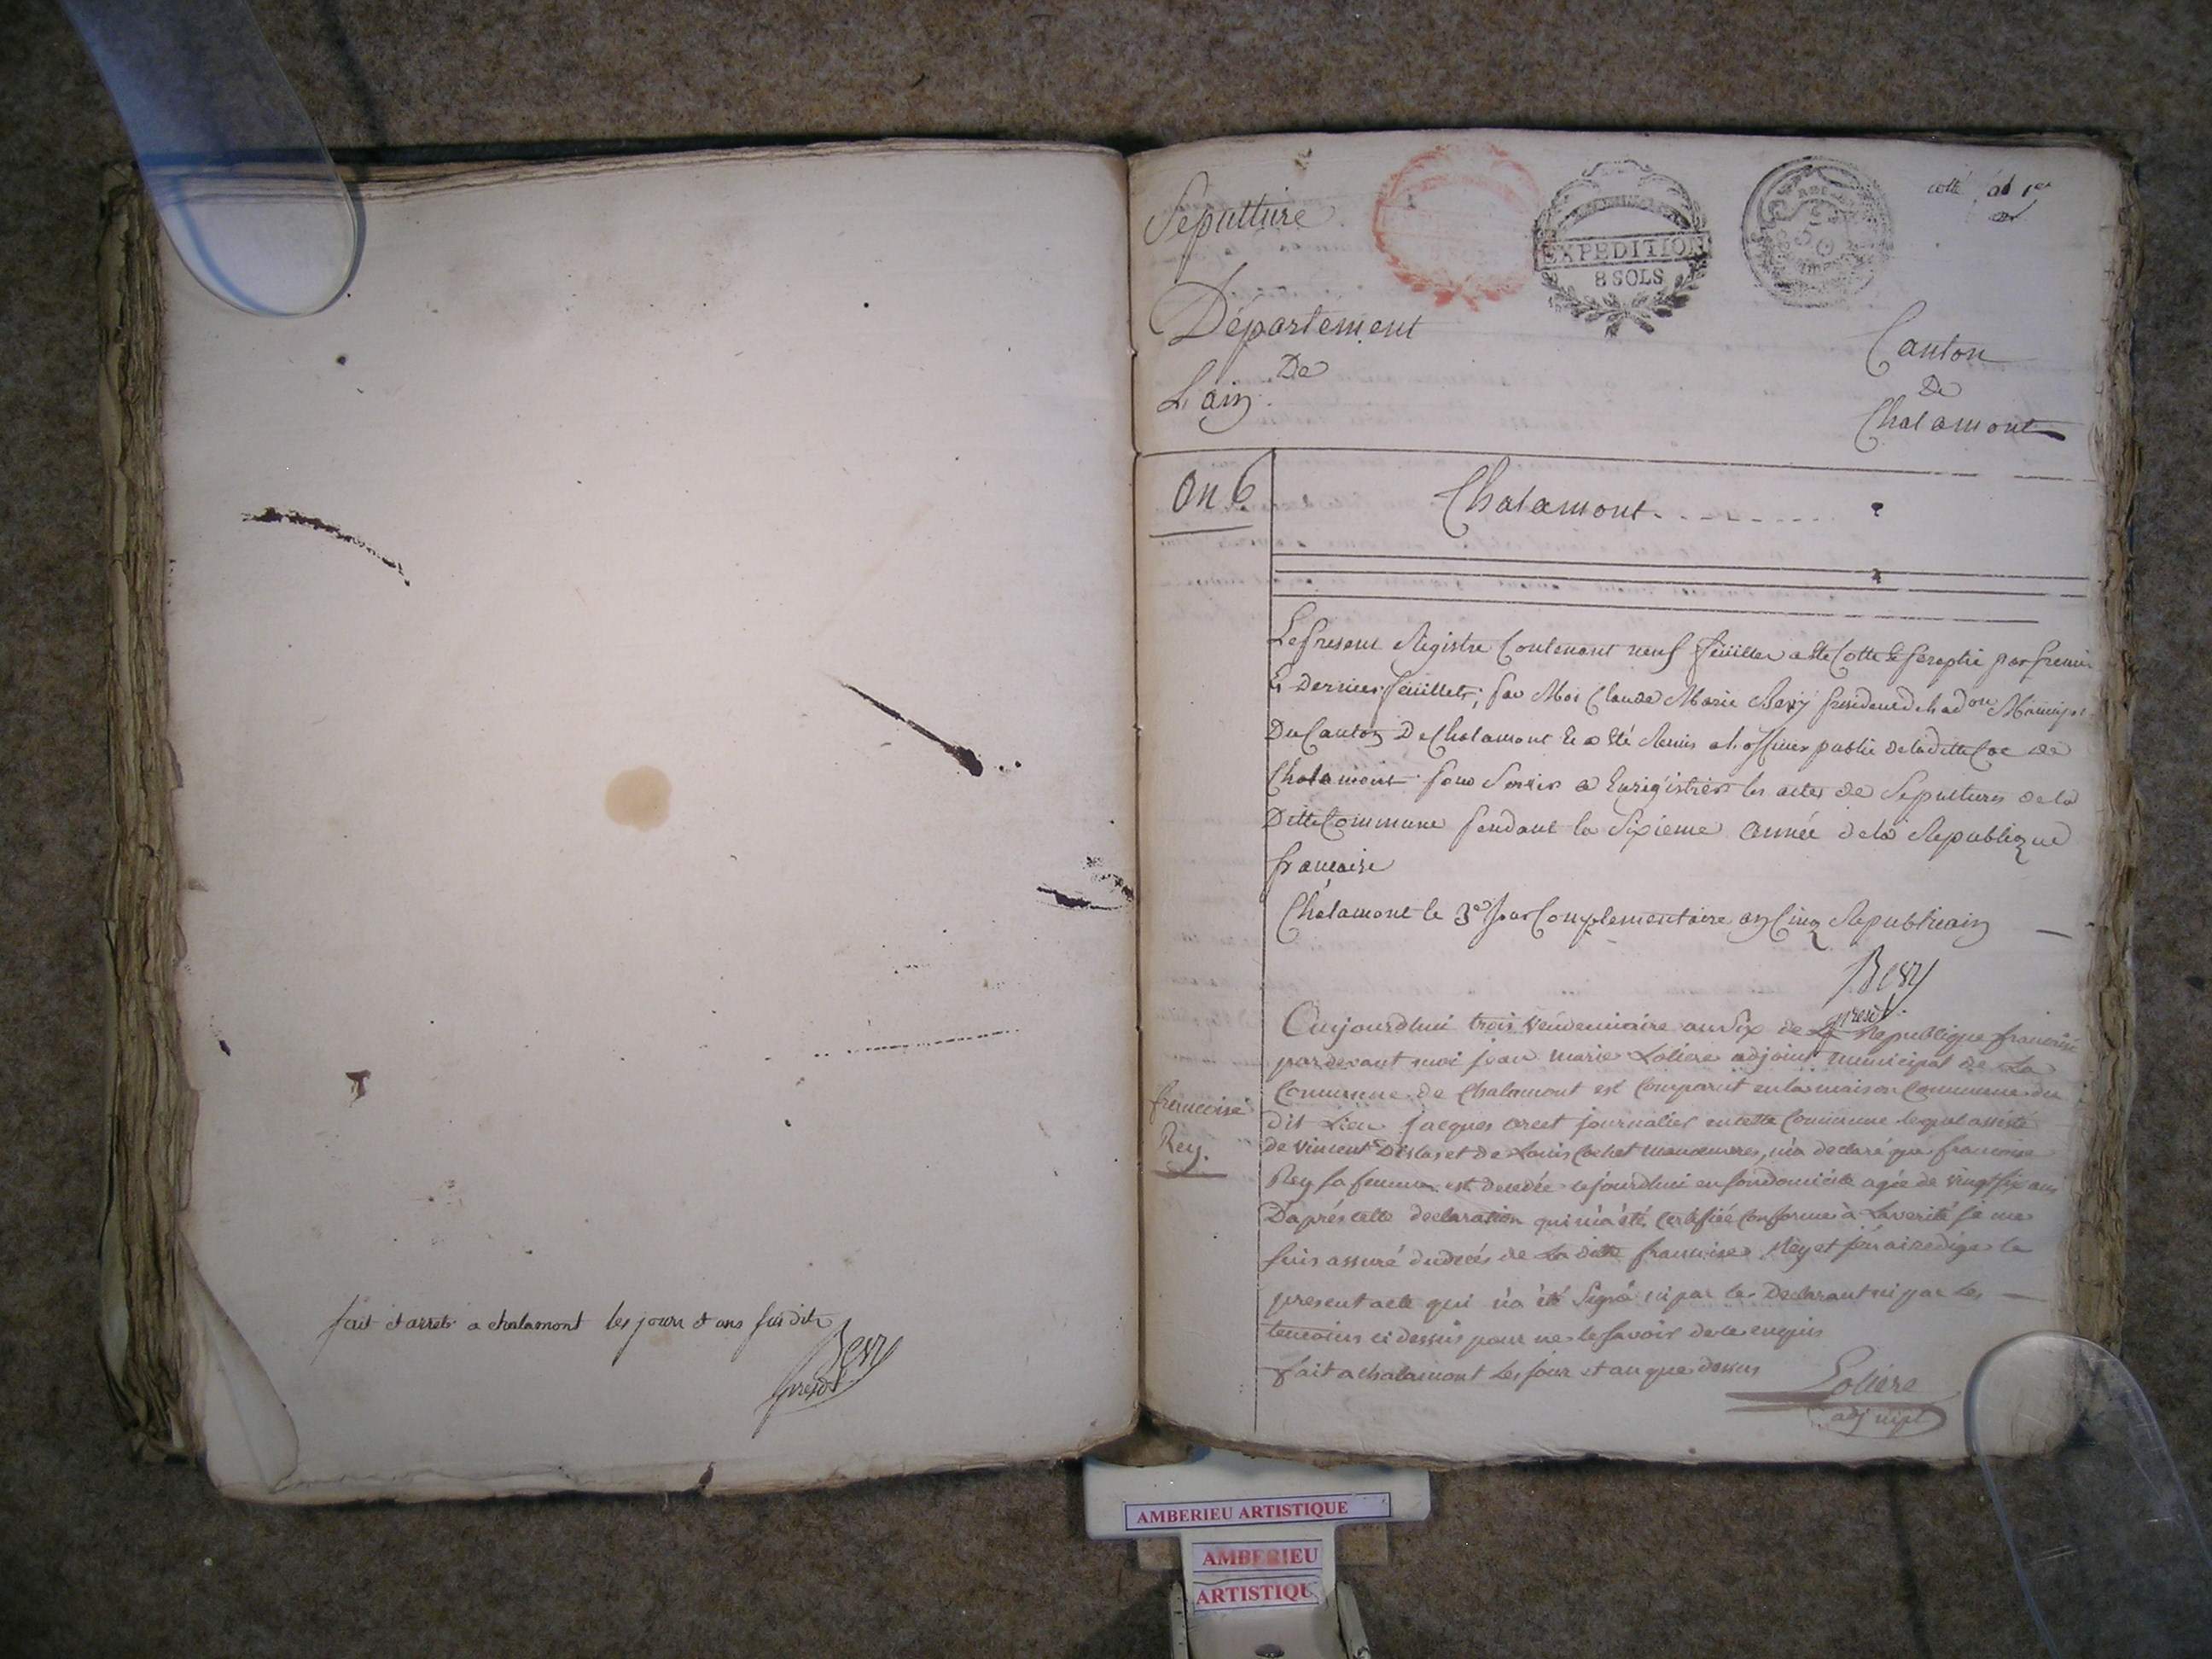 fait et arreté a chalamont les jours et ans susdits
Bery
presdt
Sepulture
EXPEDITION
8 SOLS
cotté 1er
Département
De
L'ain
Canton
De
Chalamont
An 6
Chalamont
Le present Registre Contenant neuf feuilles a été Cotté et paraphé par premier
Et Dernier feuillets, par Moi Claude Marie Bery president de l'adon Municipe
Du Canton De Chalamont Et a été Remis a l'officier public de la ditte Coe de
Chalamont pour Servir a Enregistrer les actes de Sepultures de la
Ditte Commune pendant la Sixieme année de la Republique
francaise
Chalamont le 3e Jour Complementaire an Cinq Republicain
Bery
presdt
Aujourdhui trois Vendemiaire an Six de La Republique francaise
pardevant moi jean marie Loliere adjoint municipal de La
Commune de Chalamont est Comparut en la maison Commune du
dit Lieu jacques journalier en cette Commune lequel assisté
de Vincent et de Louis Cochet manœuvres, m'a declaré que francoise
Rey sa femme est decedée cejourdhui en son domicile agée de vingt six ans
D'aprés cette declaration qui m'a été Certifiée Conforme à La verité je me
suis assuré du decés de La ditte francoise Rey et j'en ai redigé le
present acte qui n'a été Signé ni par le Declarant ni par les
temoins ci dessus pour ne le savoir de ce enquis
fait a chalamont Les jour et an que dessus
francoise
Rey.
Loliere
adj mpl
AMBERIEU ARTISTIQUE
AMBERIEU
ARTISTIQU